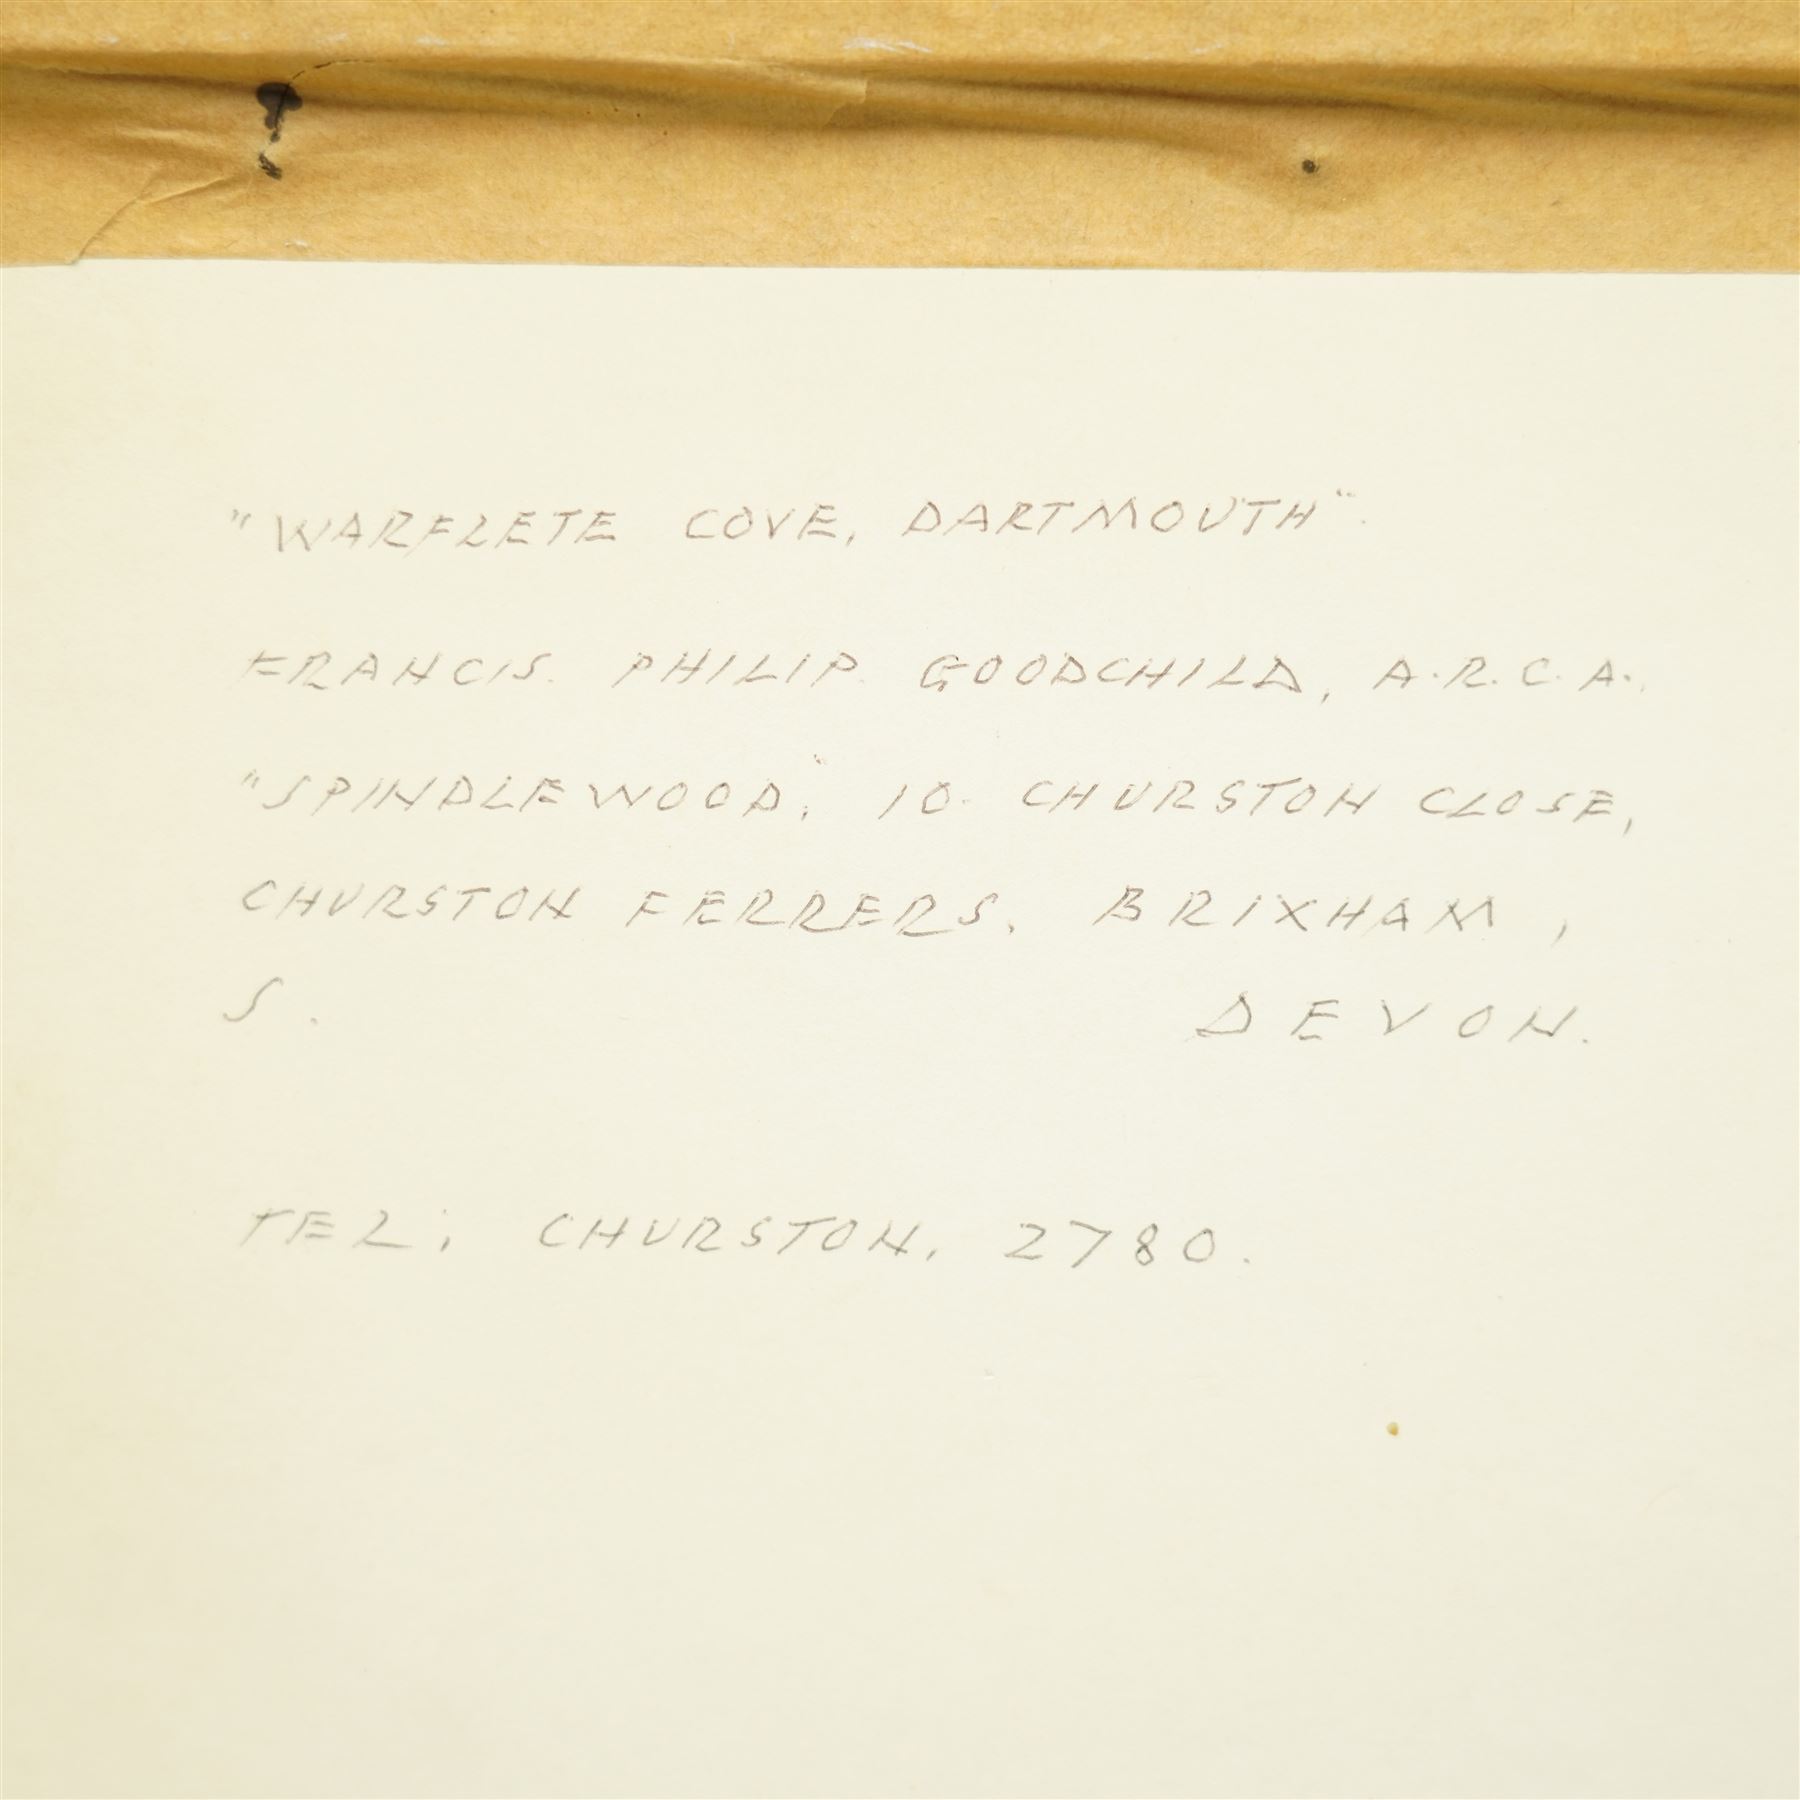 "WARFLETE COVE, DARTMOUTH".
FRANCIS. PHILIP. GOODCHILD, A.R.C.A.,
"SPINDLEWOOD", 10. CHURSTON CLOSE,
CHURSTON FERRERS. BRIXHAM,
S. DEVON.
TEL: CHURSTON. 2780.